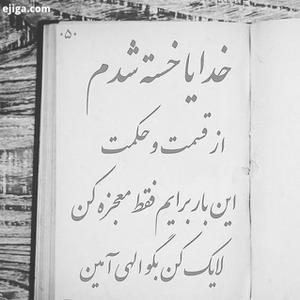 ejiga.com
۰۵۰
خدایا خسته شدم
از قسمت و حکمت
این بار برایم فقط معجزه کن
لایک کن بگو الهی آمین